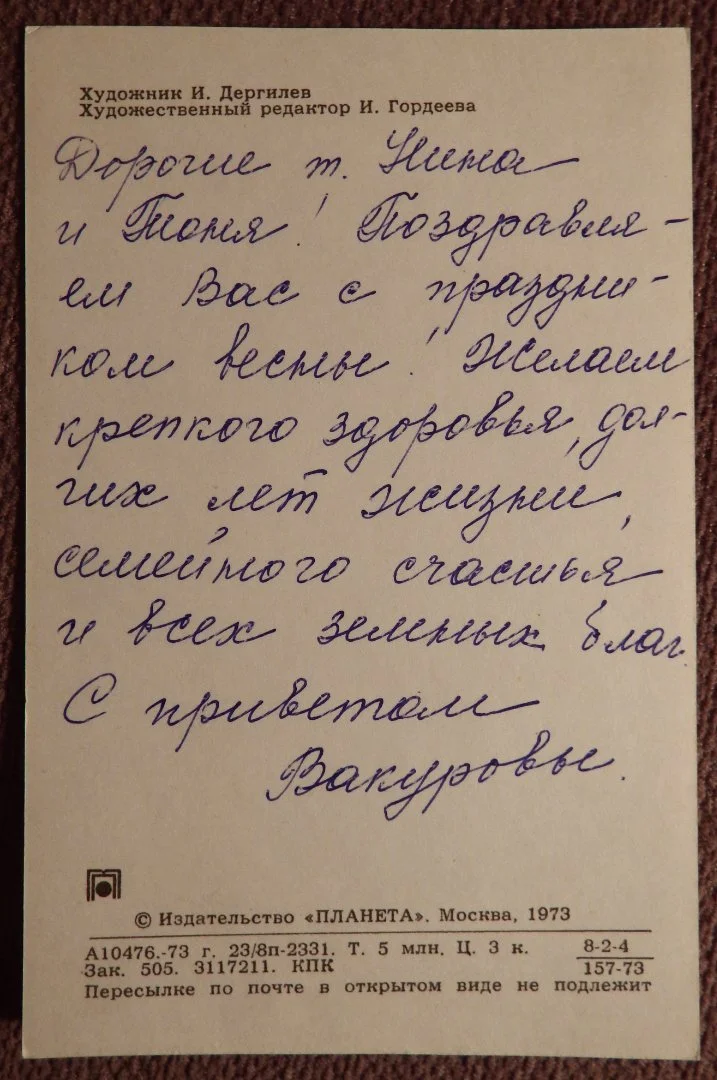 Художник И. Дергилев
Художественный редактор И. Гордеева
Дорогие т. Нина
и Тоня! Поздравля-
ем Вас с праздни-
ком весны! Желаем
крепкого здоровья, дол-
гих лет жизни,
семейного счастья
и всех земных благ.
С приветом
Вакуровы.
© Издательство «ПЛАНЕТА». Москва, 1973
А10476.-73 г. 23/8п-2331. Т. 5 млн. Ц. 3 к. 8-2-4
Зак. 505. 3117211. КПК 157-73
Пересылке по почте в открытом виде не подлежит